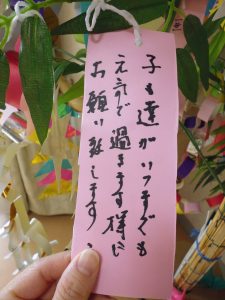 子も達がいつまでも
元気で過ます様に
お願い致します